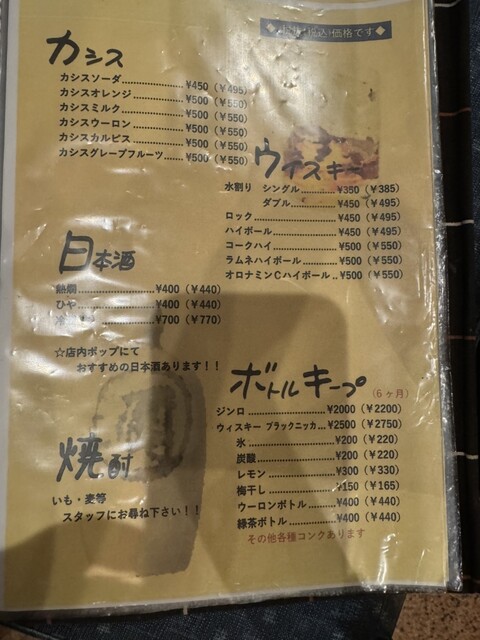 (税込)価格です◆
カシス
カシスソーダ..............¥450（¥495）
カシスオレンジ............¥500（¥550）
カシスミルク..............¥500（¥550）
カシスウーロン............¥500（¥550）
カシスカルピス............¥500（¥550）
カシスグレープフルーツ......¥500（¥550）
ウイスキー
水割り シングル............¥350（¥385）
ダブル..............¥450（¥495）
ロック....................¥450（¥495）
ハイボール................¥450（¥495）
コークハイ................¥500（¥550）
ラムネハイボール..........¥500（¥550）
オロナミンCハイボール..¥500（¥550）
日本酒
熱燗..............¥400（¥440）
ひや..............¥400（¥440）
冷 ¥700（¥770）
☆店内ポップにて
おすすめの日本酒あります！！
焼酎
いも・麦等
スタッフにお尋ね下さい！！
ボトルキープ（6ヶ月）
ジンロ....................¥2000（¥2200）
ウィスキー ブラックニッカ...¥2500（¥2750）
氷....................¥200（¥220）
炭酸..................¥200（¥220）
レモン................¥300（¥330）
梅干し................¥150（¥165）
ウーロンボトル........¥400（¥440）
緑茶ボトル............¥400（¥440）
その他各種コンクあります